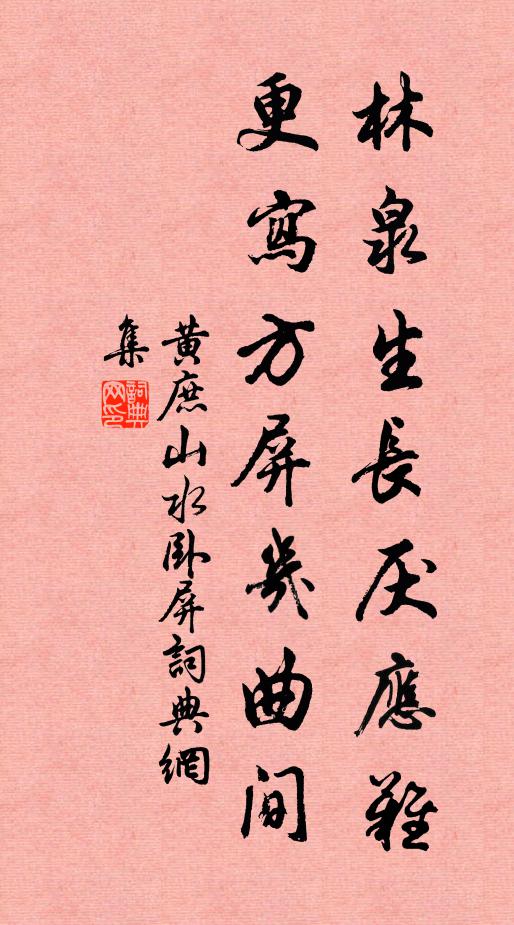 林泉生長厌應難
更寫方屏幾曲间
黄庶山水卧屏詞典網
集
詞典
网印